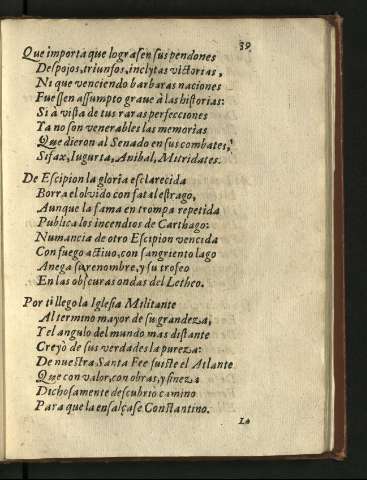 39.
Que importa que lograsen sus pendones
Despojos, triunfos, inclytas victorias,
Ni que venciendo barbaras naciones
Fuessen assumpto graue à las historias:
Si à vista de tus raras perfecciones
Ya no son venerables las memorias
Que dieron al Senado en sus combates,
Sifax, Iugurta, Anibal, Mitridates.
De Escipion la gloria esclarecida
Borra el olvido con fatal estrago,
Aunque la fama en trompa repetida
Publica los incendios de Carthago:
Numancia de otro Escipion vencida
Con fuego actiuo, con sangriento lago
Anega su renombre, y su trofeo
En las obscuras ondas del Letheo.
Por ti llego la Iglesia Militante
Al termino mayor de su grandeza,
Y el angulo del mundo mas distante
Creyò de sus verdades la pureza:
De nuestra Santa Fee fuiste el Atlante
Que con valor, con obras, y fineza
Dichosamente descubrio camino
Para que la ensalçase Constantino.
La